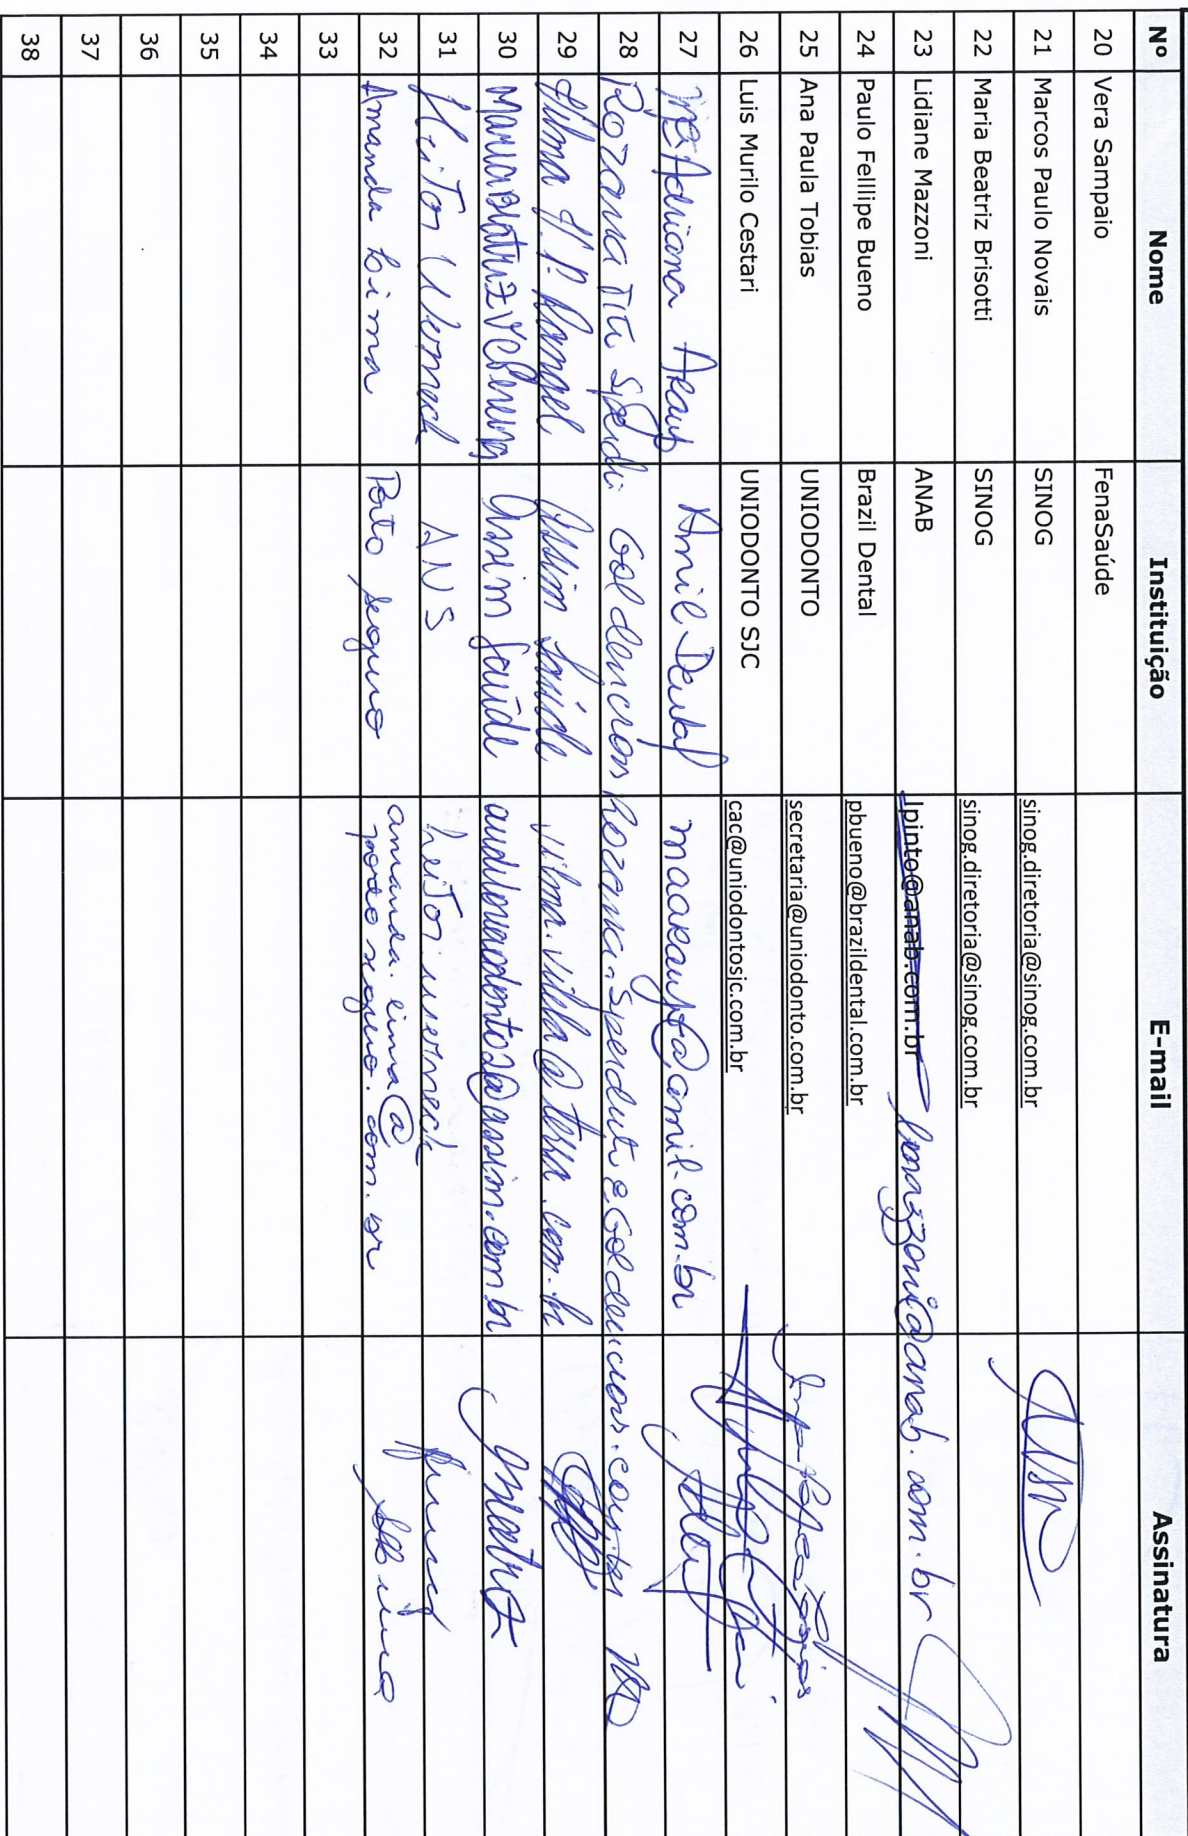 Nº Nome Instituição E-mail Assinatura
20 Vera Sampaio FenaSaúde
21 Marcos Paulo Novais SINOG sinog.diretoria@sinog.com.br
22 Maria Beatriz Brisotti SINOG sinog.diretoria@sinog.com.br
23 Lidiane Mazzoni ANAB lpinto@anab.com.br lmazzoni@anab.com.br
24 Paulo Felllipe Bueno Brazil Dental pbueno@brazildental.com.br
25 Ana Paula Tobias UNIODONTO secretaria@uniodonto.com.br
26 Luis Murilo Cestari UNIODONTO SJC cac@uniodontosjc.com.br
27 Mª Adriana Araujo Amil Dental maaraujo@amil.com.br
28 Rozana Goldencross
29 Vilma Rangel Assim Saúde vilma.villa@terra.com.br
30 Maria Beatriz Assim Saúde @assim.com.br
31 Heitor Werneck ANS heitor.werneck
32 Amanda Lima Porto Seguro amanda.lima@
portoseguro.com.br
33
34
35
36
37
38